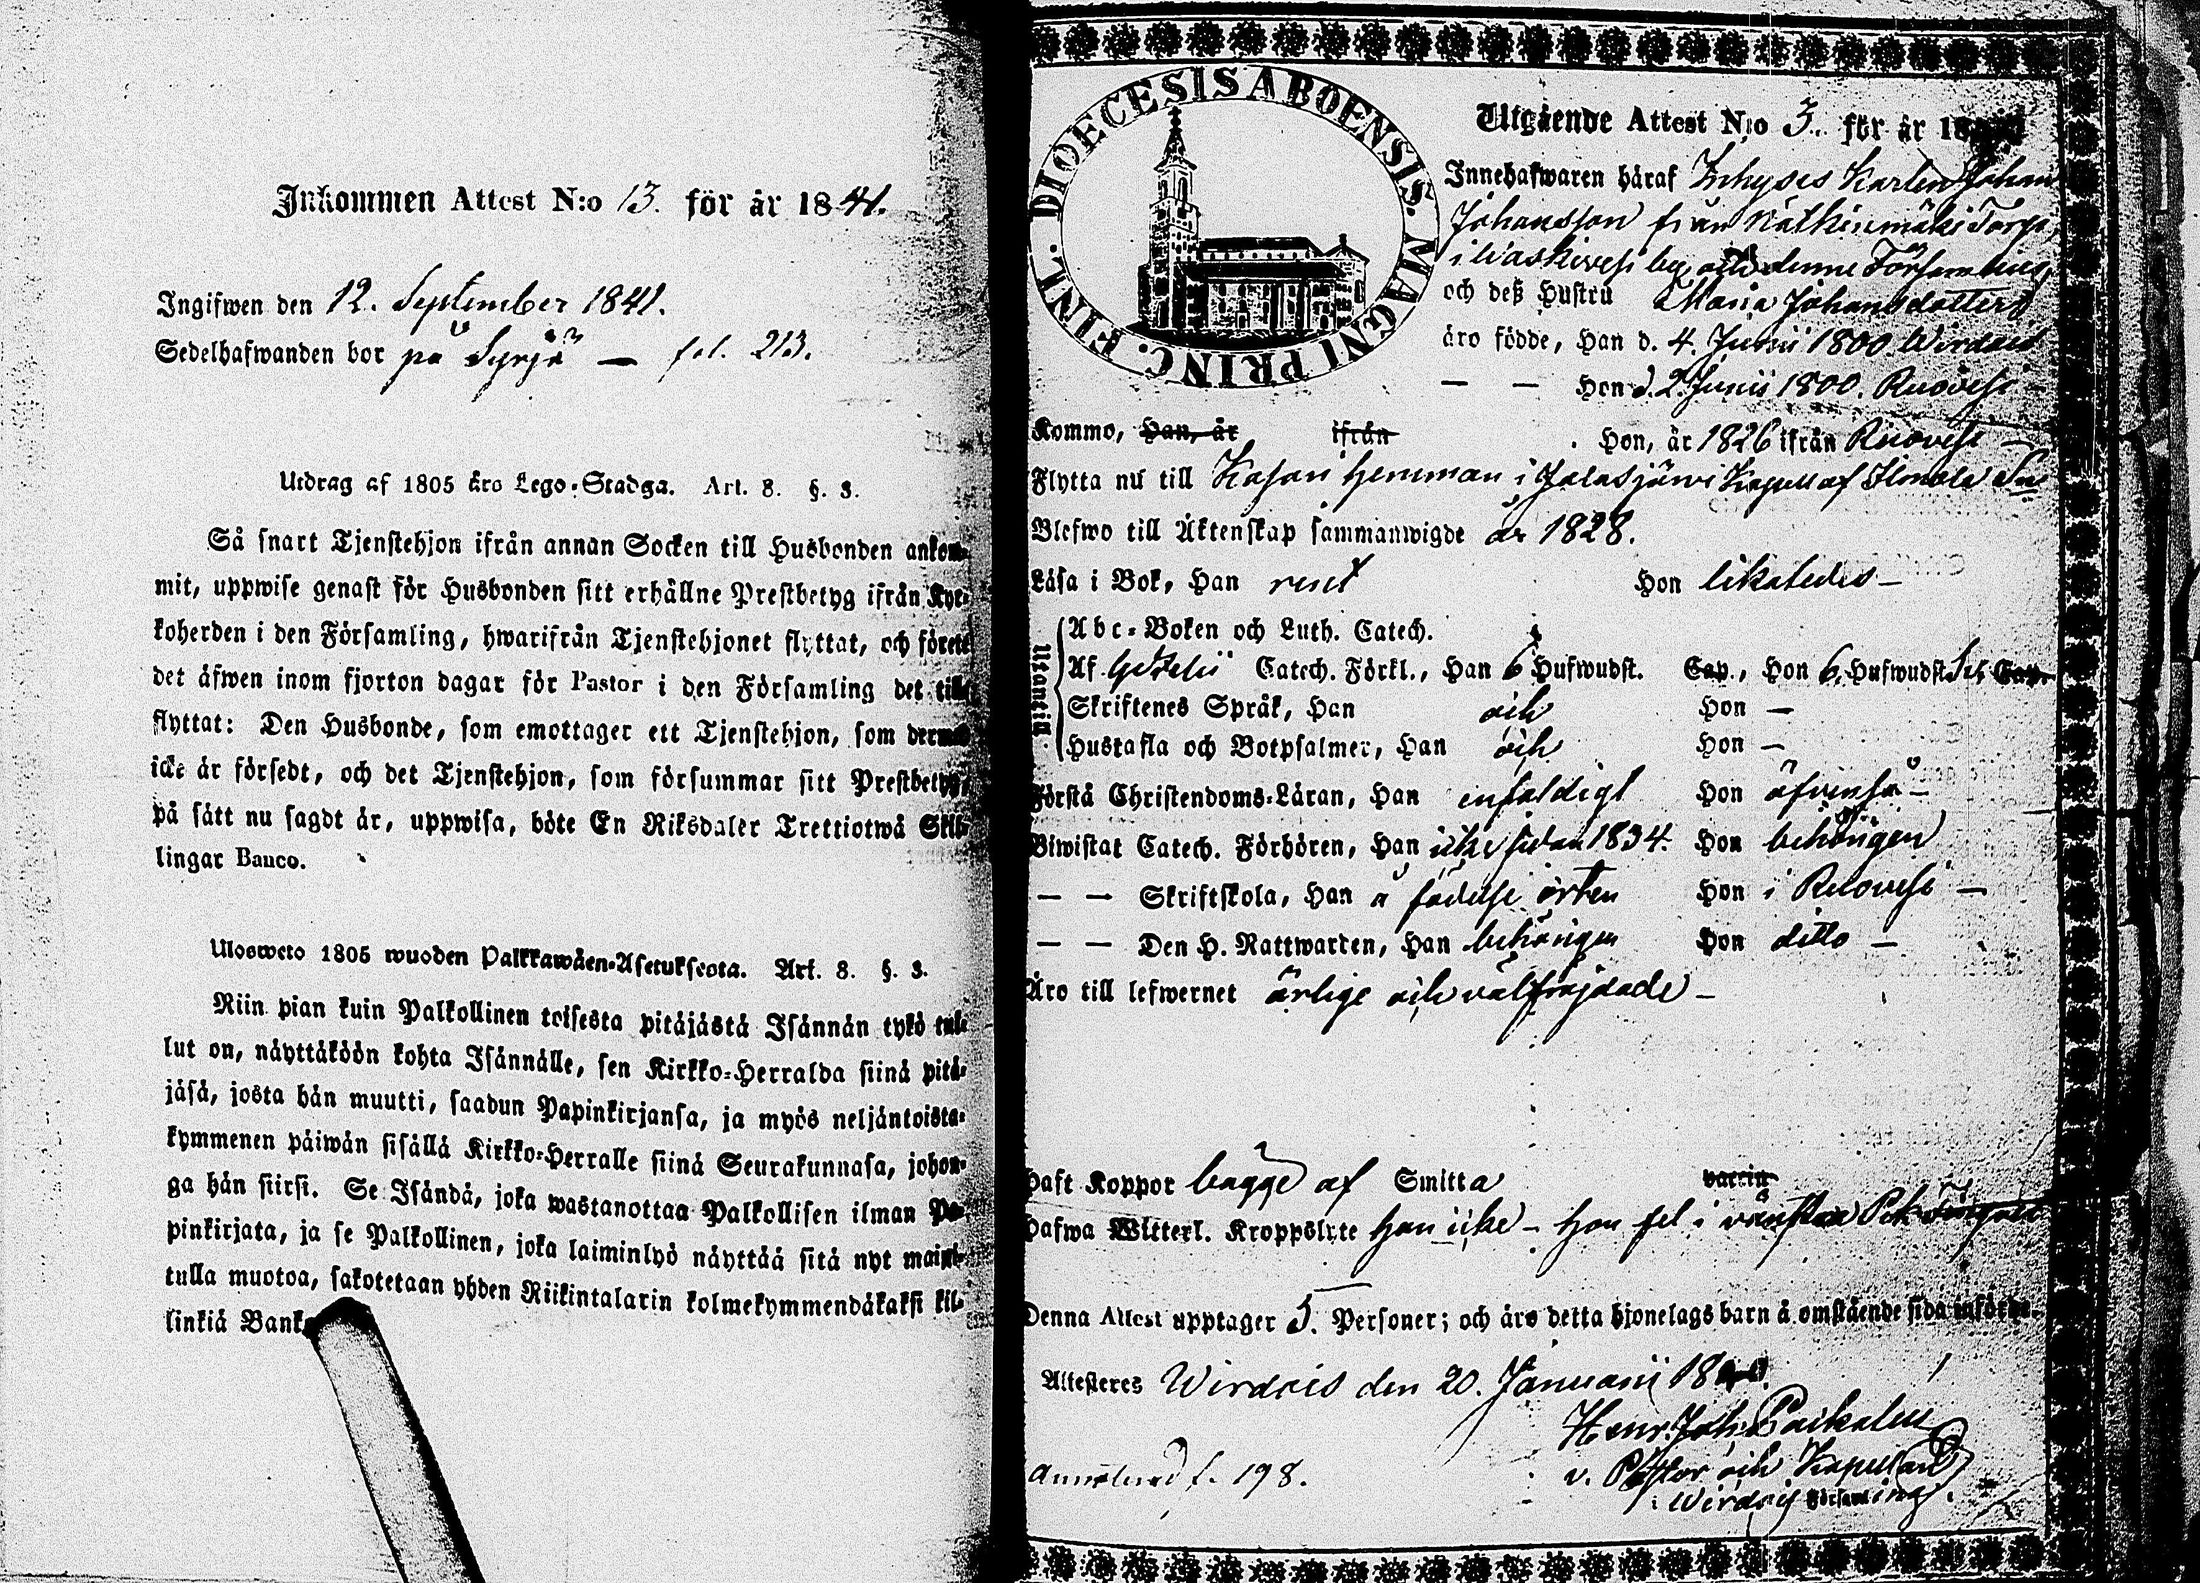 Inkommen Attest N:o 13. för år 1841.
Ingifwen den 12. September 1841.
Sedelhafwanden bor på Syrjä — fol. 213.
Utdrag af 1805 års Lego-Stadga. Art. 8. §. 3.
Så snart Tjenstehjon ifrån annan Socken till Husbonden ankom-
mit, uppwise genast för Husbonden sitt erhållne Prestbetyg ifrån Kyr-
koherden i den Församling, hwarifrån Tjenstehjonet flyttat, och förete
det äfwen inom fjorton dagar för Pastor i den Församling det till-
flyttat: Den Husbonde, som emottager ett Tjenstehjon, som dermed
icke är försedt, och det Tjenstehjon, som försummar sitt Prestbetyg,
på sätt nu sagdt är, uppwisa, böte En Riksdaler Trettiotwå Skil-
lingar Banco.
Ulosweto 1805 wuoden Palkkawäen-Asetuksesta. Art. 8. §. 3.
Niin pian kuin Palkollinen toisesta pitäjästä Isännän tykö tul-
lut on, näyttäköön kohta Isännälle, sen Kirkko-Herralda siinä pitä-
jäsä, josta hän muutti, saadun Papinkirjansa, ja myös neljäntoista-
kymmenen päiwän sisällä Kirkko-Herralle siinä Seurakunnasa, johon-
ga hän siirsi. Se Isändä, joka wastanottaa Palkollisen ilman Pa-
pinkirjata, ja se Palkollinen, joka laiminlyö näyttää sitä nyt maini-
tulla muotoa, sakotetaan yhden Riikintalarin kolmekymmendäkaksi kil-
linkiä Banko
DIOECESIS ABOENSIS. MAGNI PRINC. FINL.
Utgående Attest N:o 3. för år 18
Innehafwaren häraf Karlen Johan
Johansson från Torp
i Waskivesi by och denne Församling,
och deß Hustru Maria Johansdotter
äro födde, Han d. 4. Junii 1800. Wirdois
— — Hon d. 2. Junii 1800. Ruovesi
Komme, Han, år ifrån . Hon, år 1826 ifrån Ruovesi —
Flytta nu till hemman i Jalasjärwi Kapell af Ilmola
Blefwo till Äktenskap sammanwigde år 1828.
Läsa i Bok, Han rent Hon likaledes —
Utantill.
Abc-Boken och Luth. Catech.
Af Catech. Förkl., Han 6 Hufwudst. Cap., Hon 6. Hufwudst. Cap.
Skriftenes Språk, Han och Hon —
Hustafla och Botpsalmer, Han och Hon —
Förstå Christendoms-Läran, Han enfaldigt Hon äfvenså —
Biwistat Catech. Förhören, Han icke sedan 1834. Hon behörigen
— — Skriftskola, Han å födelse orten Hon i Ruovesi —
— — Den H. Nattwarden, Han behörigen Hon ditto —
Äro till lefwernet ärlige och välfräjdade —
Haft Koppor bägge af Smitta
Hafwa Witterl. Kroppslyte han icke — hon fel i vänstra
Denna Attest upptager 5. Personer; och äro detta hjonelags barn å omstående sida införde.
Attesteres Wirdois den 20. Januarii 18
Henr. Joh.
v. Pastor och Kapellan
i Wirdois Församling.
f. 198.